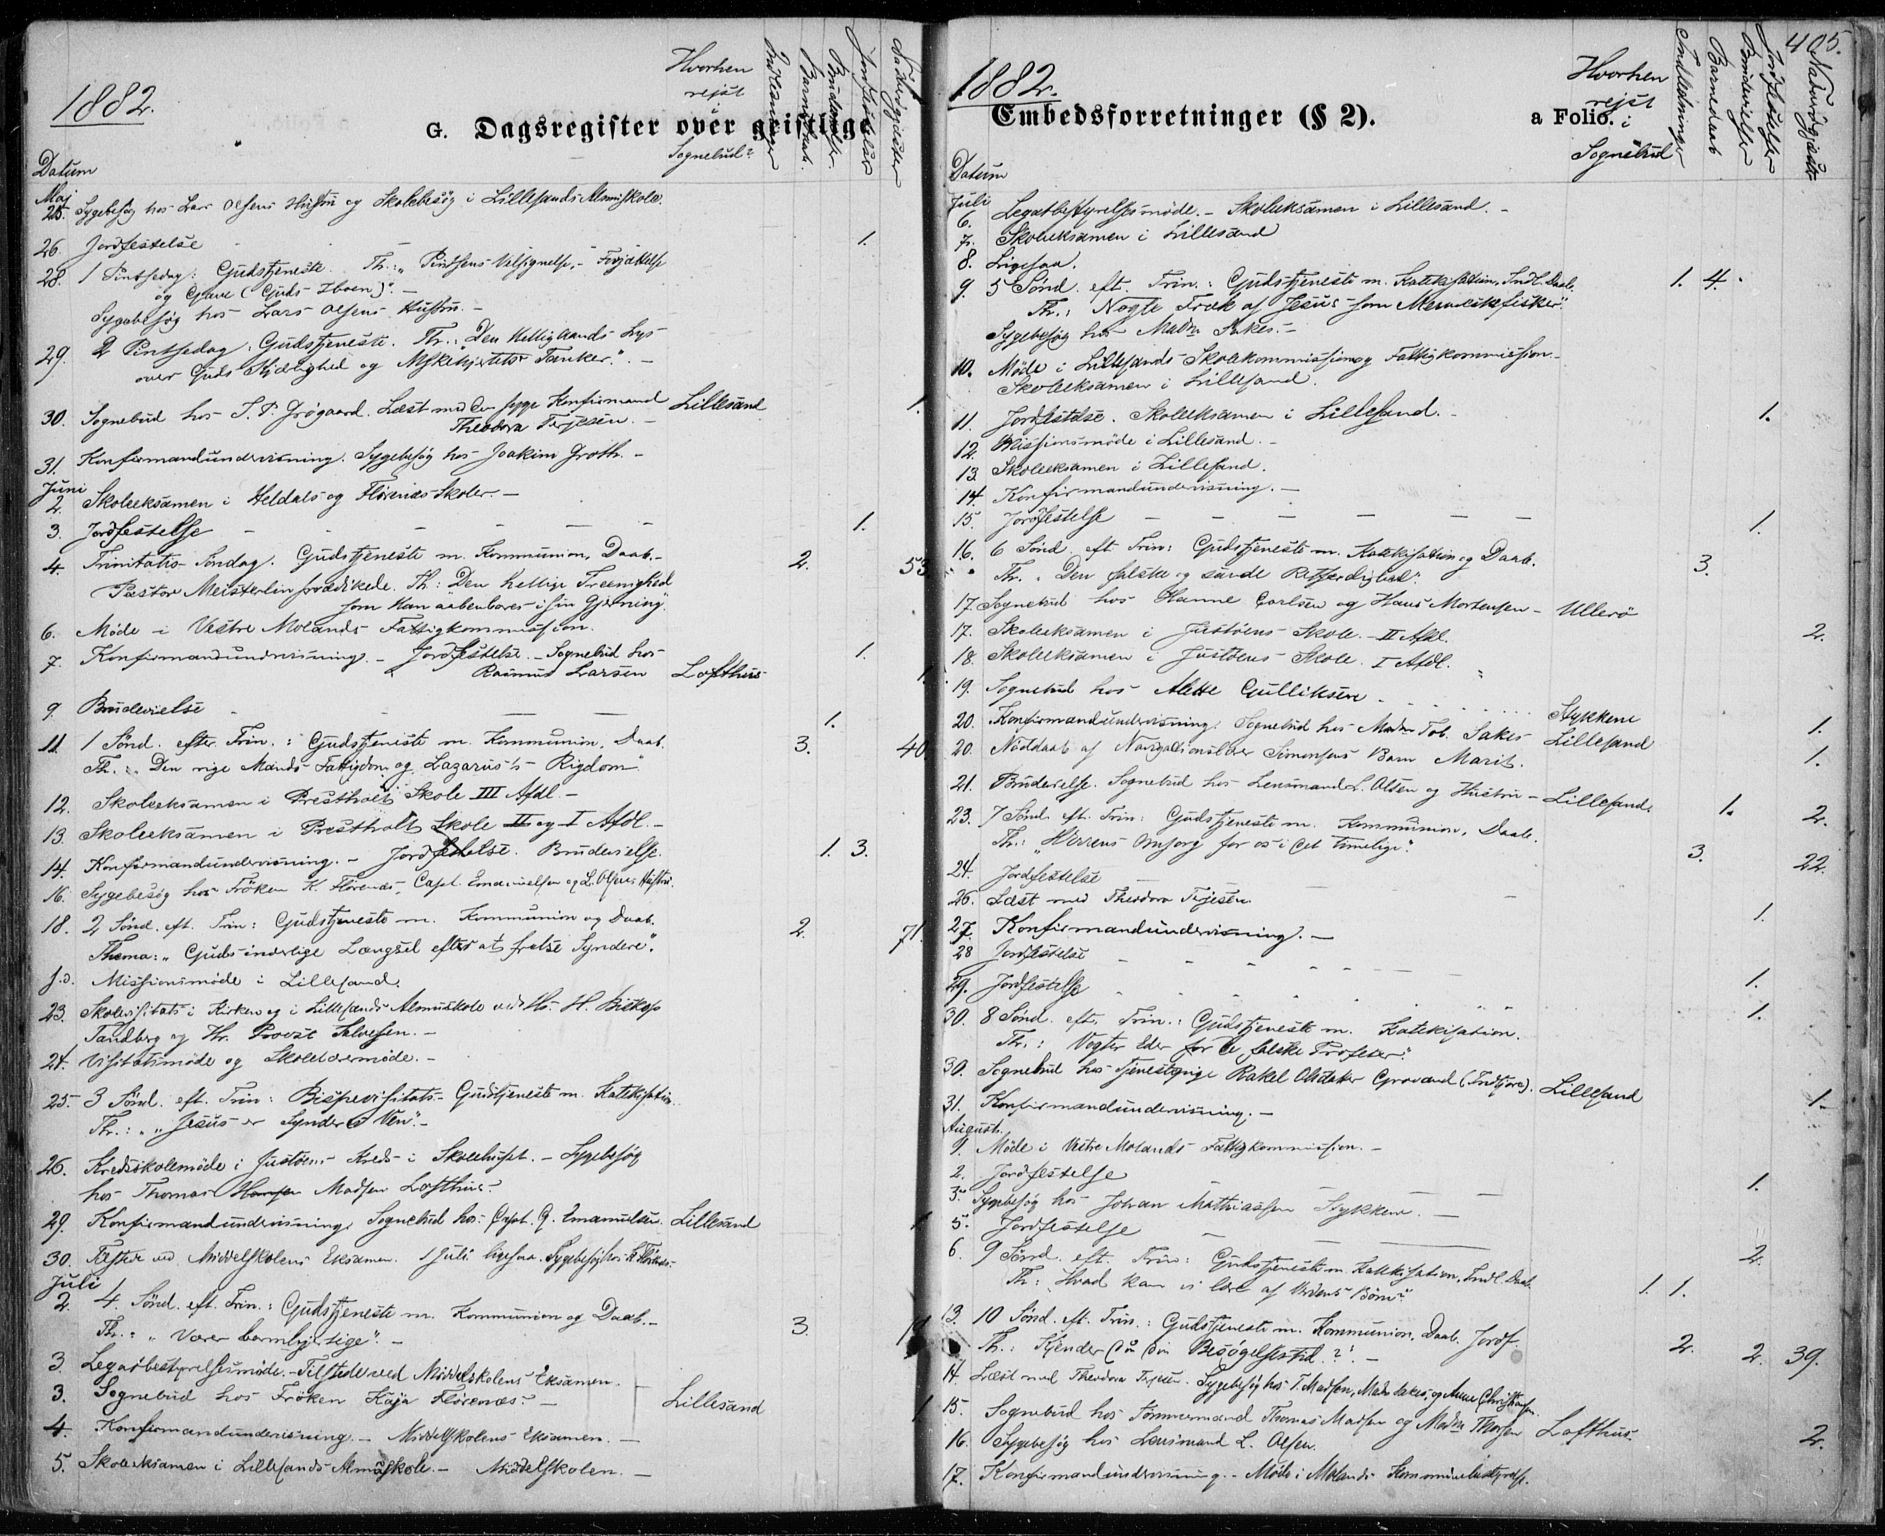 1882.
G. Dagsregister over geistlige
Hvorhen
rejst
i
Sognebud?
Indledninger
Barnedaab.
Brudevielser.
Jordfæstelser
Nadvergjæster
Datum
Maj
25. Sygebesøg hos Lars Olsens Hustru og Skolebesøg i Lillesands Almuskole.
26. Jordfestelse 1.
28. 1 Pintsedag: Gudstjeneste. Th.: "Pindsens Velsignelse, - Forjættelse
og Gave (Guds Iboen)". -
Sygebesøg hos Lars Olsens Hustru. -
29. 2 Pintsedag: Gudstjeneste. Th.: "Den Helligaands Lys
over Guds Kjærlighed og Tanker". -
30. Sognebud hos S. P. Grögaard. Læst med den syge Konfirmand Lillesand 1.
Theodora Terjesen. -
31. Konfirmandundervisning. Sygebesøg hos Joakim Groth. -
Juni
2. Skoleeksamen i Heldals og Flörenæs Skoler. -
3. Jordfestelse - - - - - - 1.
4. Trinitatis Søndag. Gudstjeneste m. Kommunion, Daab. - 2. 53.
Pastor Meisterlin prædikede. Th: "Den hellige Treenighed
som Han aabenbares i sin Gjerning".
6. Møde i Vestre Molands Fattigkommission.
7. Konfirmandundervisning. - Jordfestelse. - Sognebud hos 1.
Rasmus Larsen Lofthus 1.
9. Brudevielse - - 1.
11. 1 Sønd. efter Trin.: Gudstjeneste m. Kommunion, Daab. 3. 40.
Th.: "Den rige Mands Fattigdom og Lazarus's Rigdom"
12. Skoleeksamen i Prestholt Skole III Afdl. -
13. Skoleeksamen i Prestholt Skole II og I Afdl. -
14. Konfirmandundervisning. - Jordfestelse. Brudevielse. 1. 3.
16. Sygebesøg hos Fröken K. Flörenæs, Capt. Emanuelsen og L. Olsens Hustru.
18. 2 Sønd. eft. Trin: Gudstjeneste m. Kommunion og Daab. 2. 71.
Thema: "Guds inderlige Længsel efter at frelse Syndere".
s.d. Missionsmøde i Lillesand.
23. Skolevisitats i Kirken og i Lillesands Almuskole ved Hr. H. Biskop
Tandberg og Hr. Provst Salvesen. -
24. Visitatsmøde og Skolelærermøde. -
25. 3 Sønd. eft. Trin: Bispevisitats - Gudstjeneste m. Katekisation.
Th.: "Jesus er Synderes Ven". -
26. Kredsskolemøde i Justøens Kreds i Skolehuset. - Sygebesøg
hos Thomas Madsen Lofthus.
29. Konfirmandundervisning. Sognebud hos Capt. G. Emanuelsen. Lillesand 1
30. ved Middelskolens Eksamen. 1 Juli ligesaa. Sygebesøg hos K. Flörenæs
Juli
2. 4. Sønd. eft. Trin.: Gudstjeneste m. Kommunion og Daab. - 3.
Th.: "Værer barmhjertige". -
3. Legatbestyrelsesmøde. - Tilstede ved Middelskolens Eksamen.
3. Sognebud hos Fröken Kaja Flörenæs. - Lillesand 1
4. Konfirmandundervisning. - Middelskolens Eksamen. -
5. Skoleeksamen i Lillesands Almuskole. - Middelskolen. -
1882.
405.
Embedsforretninger (§ 2).
a Folio.
Hvorhen
rejst
i
Sognebud
Indledninger
Barnedaab
Brudevielser
Jordfestelser
Nadvergjæst
Datum
Juli
6. Legatbestyrelsesmøde. - Skoleeksamen i Lillesand. -
7. Skoleeksamen i Lillesand
8. Ligesaa.
9. 5 Sønd. eft. Trin.: Gudstjeneste m. Katekisation, Indl. Daab. 1. 4.
Th.: Nogle Træk af Jesus som Menneskefisker".
Sygebesøg hos Madm Sakes. -
10. Møde i Lillesands Skolekommission og Fattigkommission -
Skoleeksamen i Lillesand.
11. Jordfestelse. Skoleeksamen i Lillesand. - 1.
12. Missionsmøde i Lillesand. -
13. Skoleeksamen i Lillesand.
14. Konfirmandundervisning. -
15. Jordfestelse - - - - - - 1.
16. 6 Sønd. eft. Trin: Gudstjeneste m. Katekisation og Daab. 3.
Th. "Den falske og sande Retfærdighed".
17. Sognebud hos Hanne Carlsen og Hans Mortensen - Ulleröe 2.
17. Skoleeksamen i Justøens Skole. - II Afdl.
18. Skoleeksamen i Justøens Skole. I Afdl.
19. Sognebud hos Alette Gulliksen Stykkene 1.
20. Konfirmandundervisning. Sognebud hos Madm Tob. Sakes Lillesand 1.
20. Nøddaab af Navigationslærer Simonsens Barn Marit.
21. Brudevielse. Sognebud hos Lensmand L. Olsen og Hustru - Lillesand. 1. 2.
23. 7 Sønd. eft. Trin: Gudstjeneste m. Kommunion, Daab. 3. 22.
Th.: "Herrens Omsorg for os i det timelige".
24. Jordfestelse - - - 1.
26. Læst med Theodora Terjesen
27. Konfirmandundervisning. -
28 Jordfestelse - - - 1.
29. Jordfestelse 1.
30. 8 Sønd. eft. Trin.: Gudstjeneste m. Katekisation.
Th.: Vogter Eder for de falske Profeter".
30. Sognebud hos Tjenestepige Rakel (Indføre). Lillesand 1.
31. Konfirmandundervisning. -
August.
1. Møde i Vestre Molands Fattigkommission. -
2. Jordfestelse - - - 1.
3. Sygebesøg hos Johan Mathiassen Stykken. -
5. Jordfestelse - 2.
6. 9 Sønd. eft. Trin: Gudstjeneste m. Katekisation, Indl. Daab. 1. 1.
Th: Hvad kan vi lære af Verdens Børn?"
13. 10 Sønd. eft. Trin.: Gudstjeneste m. Kommunion, Daab. Jordf. 2. 2. 39.
Th.: Kjender du din Besøgelsestid?". -
14. Læst med Theodora Terjesen. Sygebesøg hos T. Madsen, Madm Sakes, og Anne Christensen.
15. Sognebud hos Tömmermand Thomas Madsen og Madm Thorsen Lofthus. 2.
16. Sygebesøg hos Lensmand L. Olsen.
17. Konfirmandundervisning. - Møde i Molands Kommunebestyrelse.